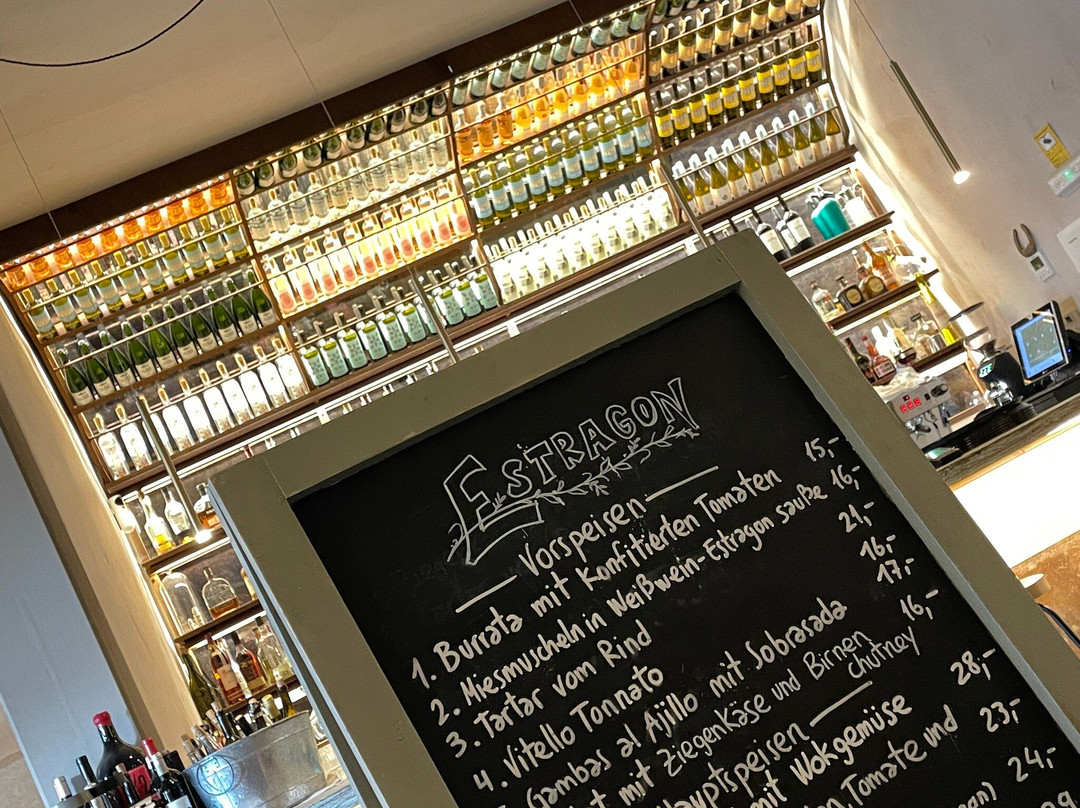 ESTRAGON
Vorspeisen
1. Burrata mit Konfitierten Tomaten 15,-
2. Miesmuscheln in Weißwein-Estragon sauße 16,-
3. Tartar vom Rind 21,-
4. Vitello Tonnato 16,-
Gambas al Ajillo mit Sobrasada 17,-
mit Ziegenkäse und Birnen 16,-
chutney
Hauptspeisen
mit Wokgemüse 28,-
Tomate und 23,-
24,-